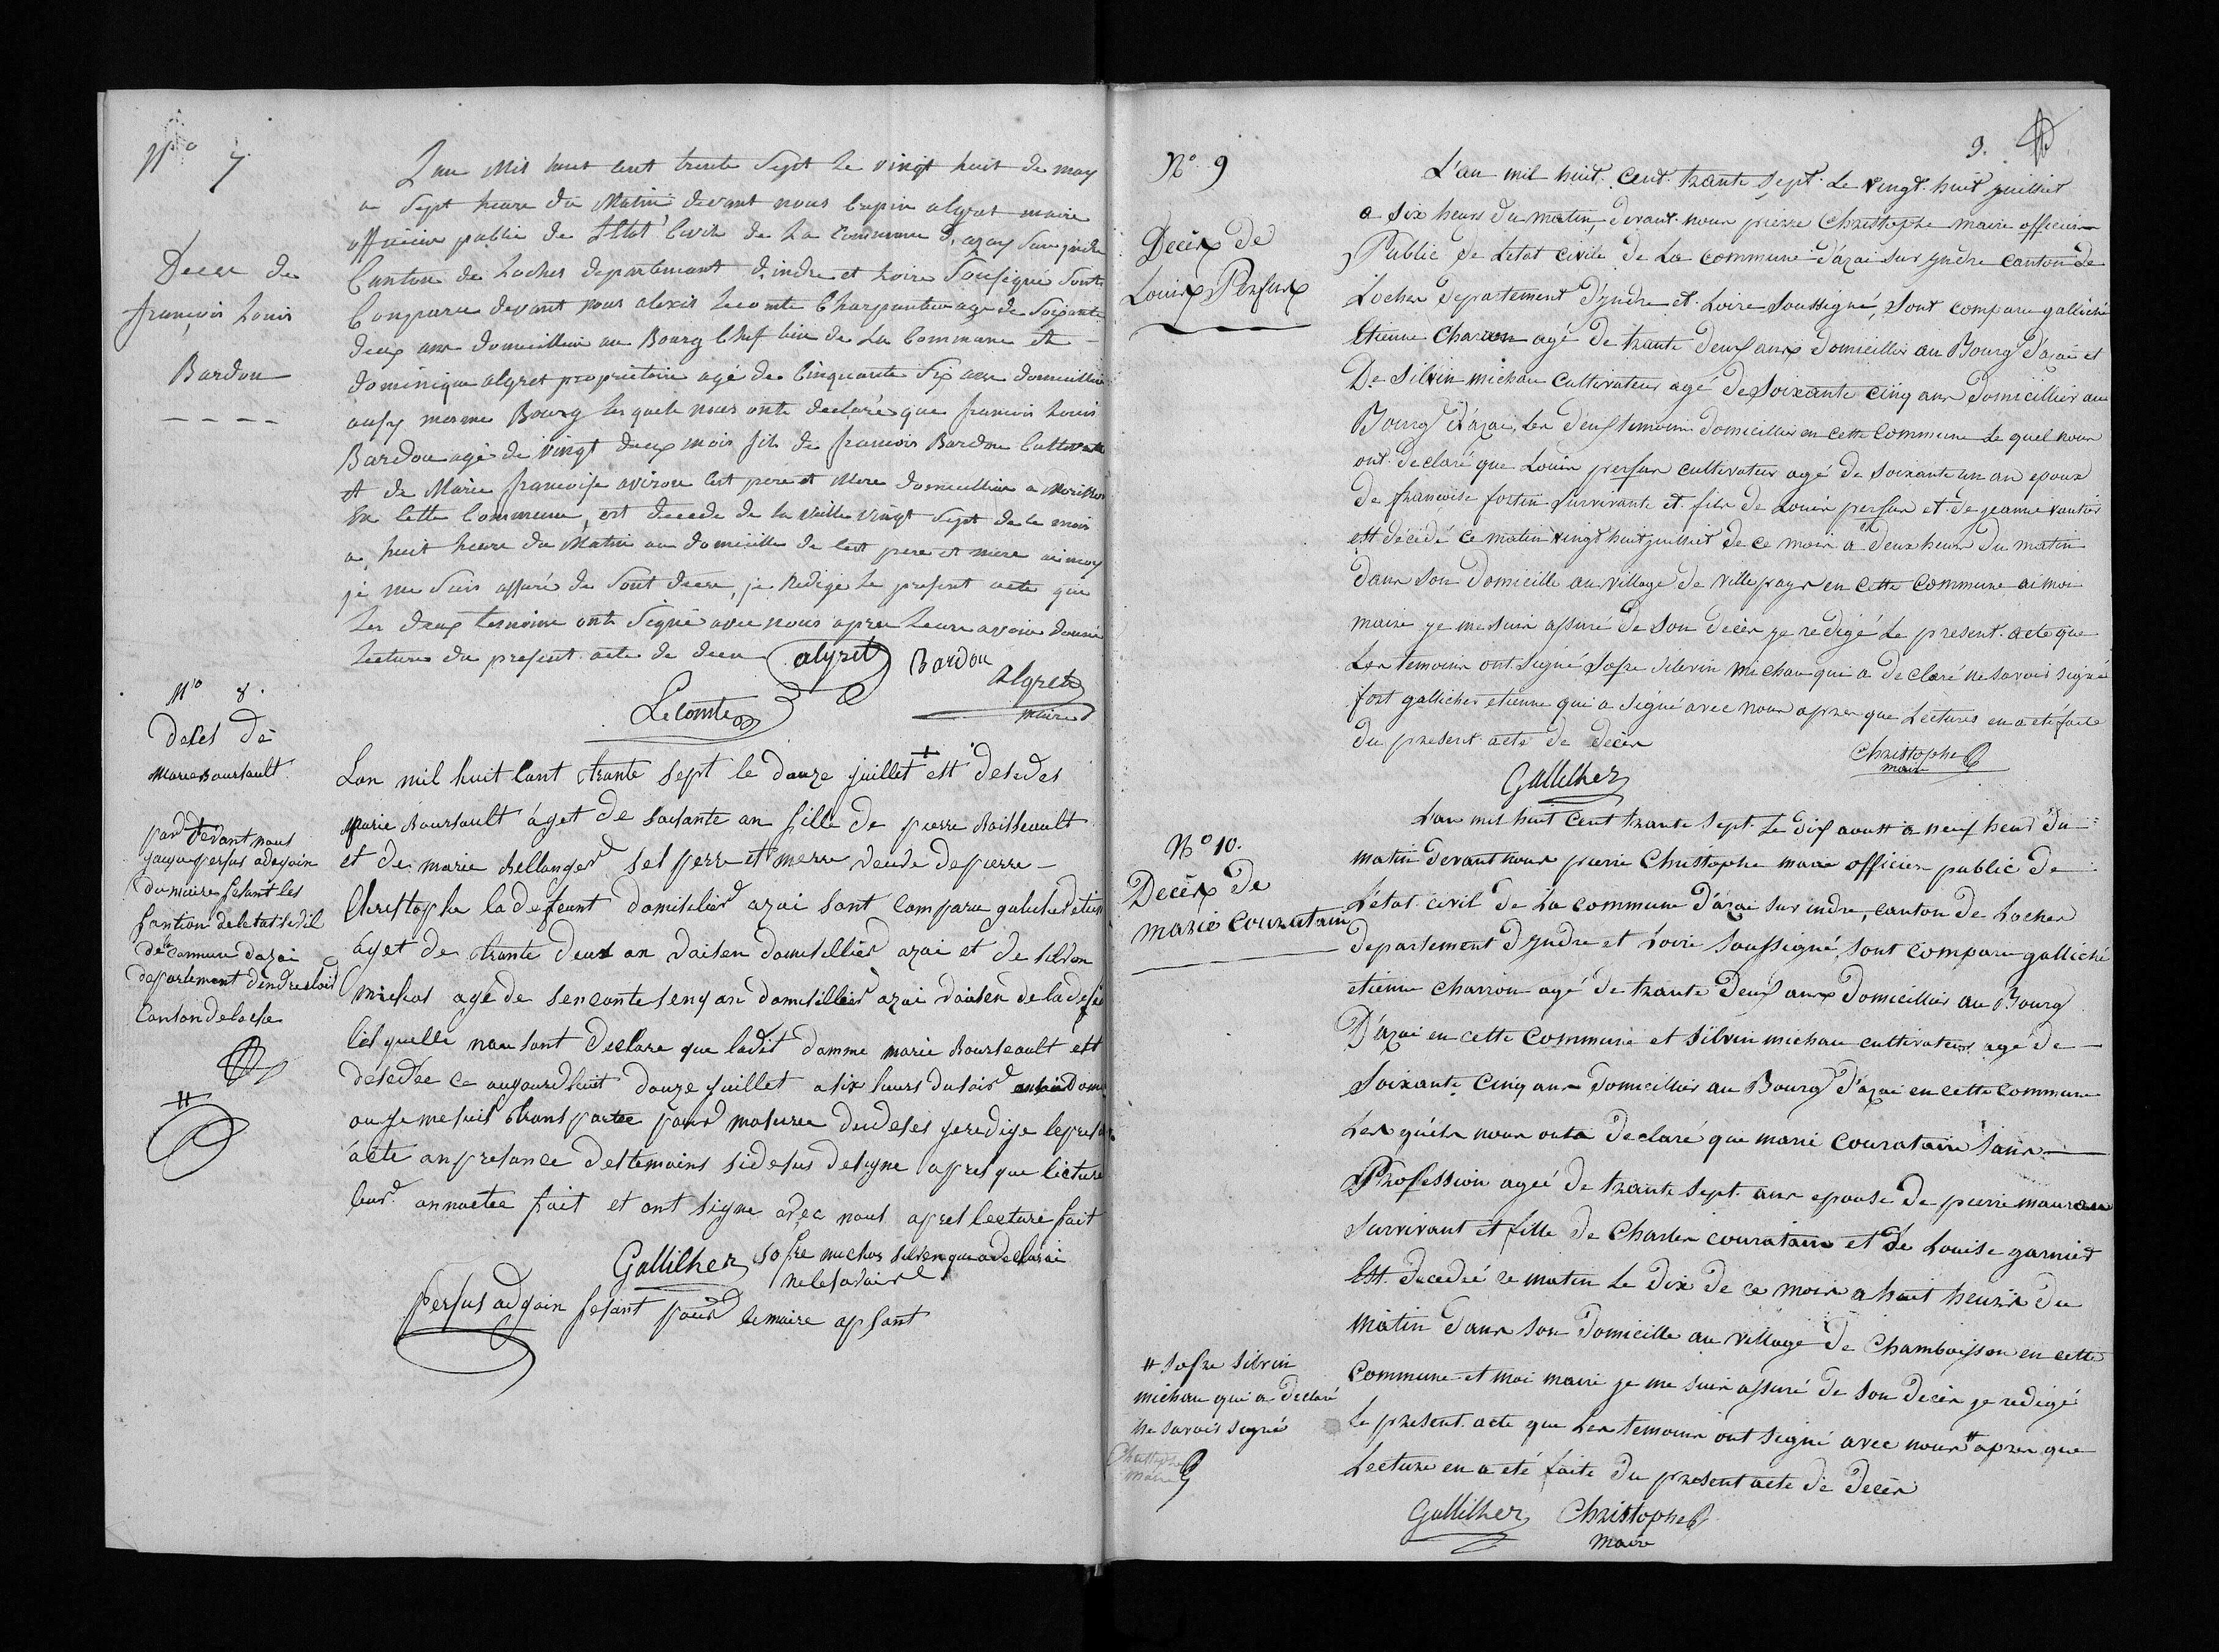 N.o 7
Deces de
françois Louis
Bardou
Lan Mil huit cent trente Sept le vingt huit de may
a Sept heure du Matin devant nous Crepin algret maire
officier public de l'Etat Civil de la Commune d'azay Sur indre
Canton de Loches departement d'indre et Loire Sousigné Sont
Comparu devant nous alexis Lecomte Charpentier age de Soixante
deux ans domicillier au Bourg Chef lieu de La Commune et
dominique algret proprietaire agé de Cinquante Six ans domicillier
ausy mesme Bourg les quels nous onte declaré que francois Louis
Bardou agé de vingt deux mois fils de francois Bardou Cultivateur
et de Marie francoise aviron Cest pere et Mere domicillier a
En Cette Commune, est decede de la veille vingt Sept de Ce mois
a huit heure du Matin au domicille de Cest pere et mere ai moy
je me Suis assuré de Sont deces, je Redige le present acte que
Les deux temoins onte Signé avec nous apres leure avoir donné
Lecture du present acte de deces algret Bardou
Algret
maire
Lecomte
N.o 8.
deces de
Marie Boursault.
par devant nous
persus adegoin
du maire fesant les
fantion de letat sivil
de la Comune dazai
departement dendre e loire
Canton de loche
Lan mil huit Cant trante sept le douze juillet est desedes
Marie Boursault âget de soisante an fille de pierre Boisseault
et de marie Bellanger ses perre et merre veuve de pierre
Christophe la defeunt domisilier azai sont Comparu galicher etien
âget de trante deux an voisen domisillier azai et de silven
michos agé de senconte senq an domisillier azai voisen de la defu
les quelle nous ont declare que ladit damme marie Bourseault est
desedee ce aujourdhuit douze juillet a six heurs du soir dom
ou je me suis transportee pour masuree du deses je redige le presen
acte an presance des temoins sidesus designe apres que lecture
leur annoetee fait et ont signe avec nous apres lecture fait
Gallilher sofre michos silven qui a declarai
ne le savoire
persus adgoin fesant pour le maire apsant
9.
N.o 9
Decèx de
Louix Persux
L'an mil huit cent trante sept Le vingt huit juilliet
a six heurs du matin, devant nous pierre Christophe maire officier
Public de Letat civile de La commune d'azai sur yndre canton de
Locher departement d'yndre et Loire soussigné, sont comparu galliché
Etienne Charon agé de trante deux anx domicillié au Bourg d'azai et
De Silvin michau Cultivateur agé de soixante cinq anx Domicillier au
Bourg d'azai, Les deux temoins domicillier en cette Commune Le quel nous
ont declaré que Louis persux cultivateur agé de soixante un an epoux
De françoise fortin survivante et fils de Louis persux et de jeanne vantos
est décédé ce matin vingt huit juilliet de ce mois a deux heurs du matin
dans son Domicille au village de Ville pays en cette Commune ai moi
maire je me suis assuré de son decès je redigé Le present acte que
Les temoins ont signé Sofre Silevin michau qui a declaré ne savoir signé
fort gallicher etienne qui a signé avec nous apres que Lectures en a eté faite
du present acte de decès
Christophe
maire
Gallilher
N.o 10.
Decèx de
marie couratain
L'an mil huit cent trante sept Le dix aoust a neuf heurs du
matin devant nous pierre Christophe maire officier public de
L'état civil de La commune d'azai sur indre, canton de Locher
departement d'yndre et Loire soussigné, sont comparu galliché
etienne charron agé de trante deux anx domicillier au Bourg
D'azai en cette Commune et silvin michau cultivateur agé de
soixante cinq ans domicillier au Bourg d'azai en cette commune
Les quels nous onts declaré que marie couratain sans
Profession ageé de trante sept ans epouse de pierre mauraus
survivant et fille de Charles couratain et de Louise garnier
Est decedeé ce matin Le dix de ce mois a huit heurs du
matin dans son domicille au village de Chamboisson en cette
Commune et moi maire je me suis assuré de son decès je redigé
Le present acte que Les temoins ont signé avec nous # apres que
Lecture en a eté faite du present acte de decès
# Sofre Silvin
michau qui a declaré
ne savoir signé
Christophe
maire
Gallilher Christophe
maire